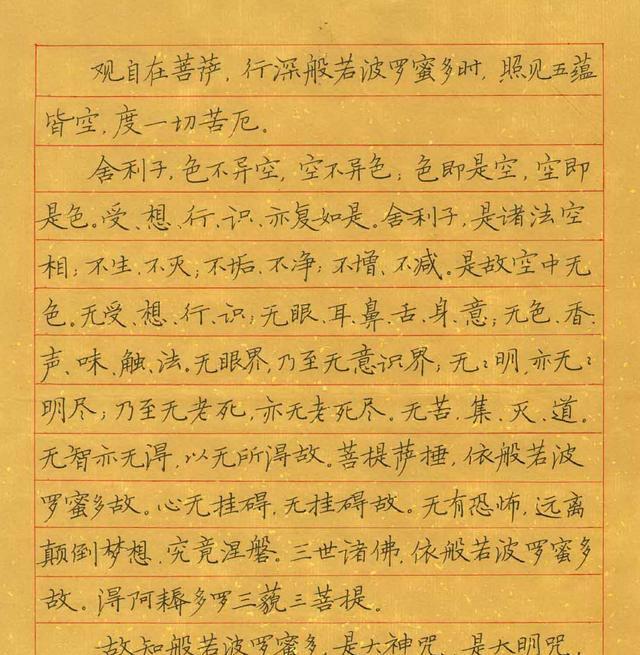 观自在菩萨,行深般若波罗蜜多时,照见五蕴
皆空,度一切苦厄。
舍利子,色不异空,空不异色;色即是空,空即
是色。受、想、行、识、亦复如是。舍利子,是诸法空
相;不生、不灭;不垢、不净;不增、不减。是故空中无
色。无受、想、行、识;无眼、耳、鼻、舌、身、意;无色、香、
声、味、触、法。无眼界,乃至无意识界;无:明,亦无:
明尽;乃至无老死,亦无老死尽。无苦、集、灭、道。
无智亦无得,以无所得故。菩提萨捶,依般若波
罗蜜多故。心无挂碍,无挂碍故。无有恐怖,远离
颠倒梦想,究竟涅磐。三世诸佛,依般若波罗蜜多
故。得阿耨多罗三藐三菩提。
故知般若波罗蜜多,是大神咒,是大明咒,